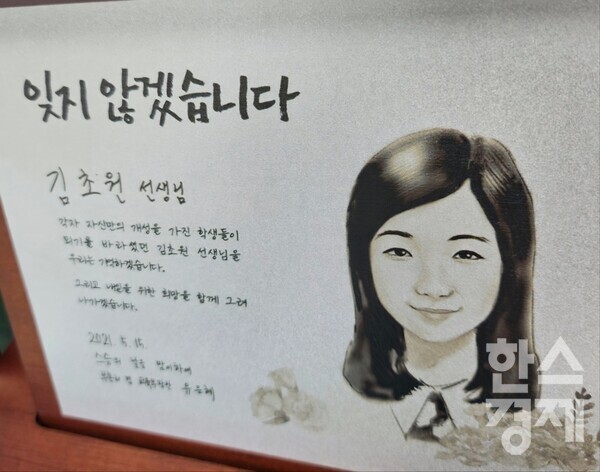 잊지 않겠습니다
김초원 선생님
각자 자신만의 개성을 가진 학생들이
되기를 바라셨던 김초원 선생님을
우리는 기억하겠습니다.
그리고 내일을 위한 희망을 함께 그려
나가겠습니다.
2021. 5. 15.
스승의 날을 맞이하여
부총리 겸 교육부장관 유은혜
한스
경제